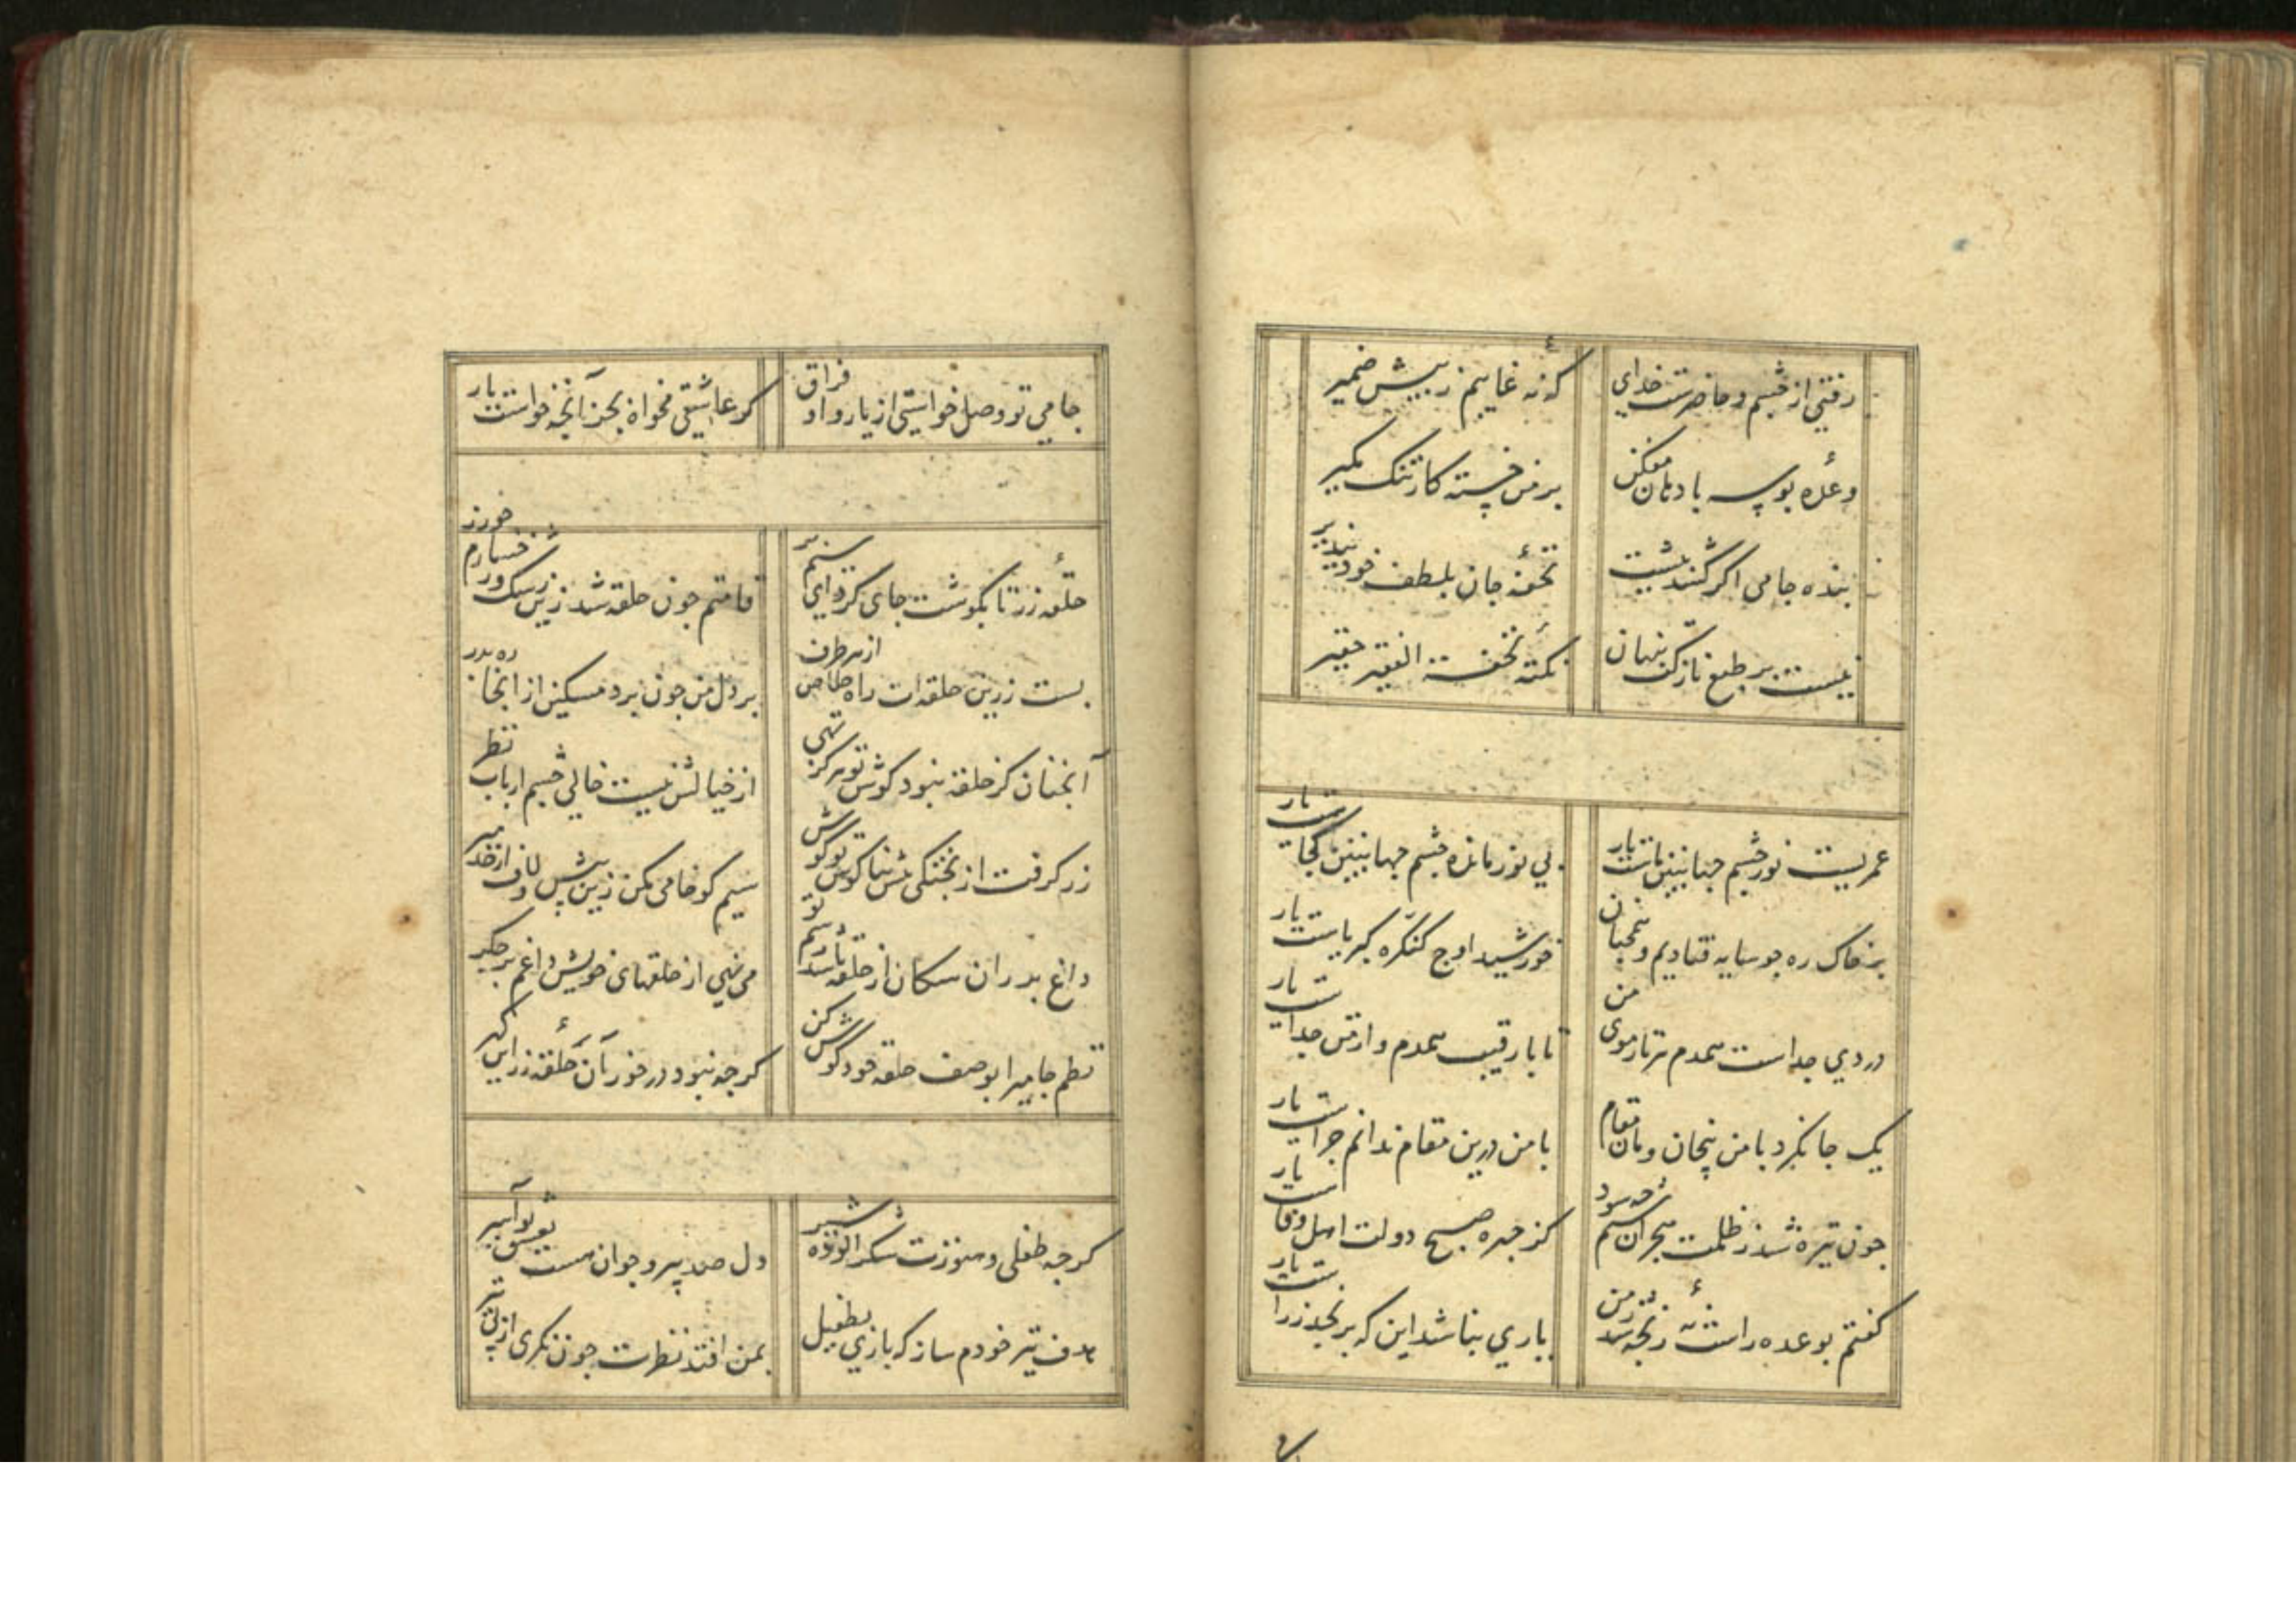 رفتی از چشم و حاضرست خدای
که نه غایبم ز پیش ضمیر
وعده بوسه با دهان مفکن
بر من خسته کار تنک مکیر
بنده جامی اکر کشد پیشت
تحفه جان بلطف خود بپذیر
نیست بر طبع نازکت پنهان
نکته تحفة الفقیر حقیر
عمریست نور چشم جهانبین ماست یار
بی نور مانده چشم جهانبین کجاست یار
بر خاک ره چو سایه فتادیم و همچنان
خورشید اوج کنکره کبریاست یار
درد جداست همدم هر تار موی من
تا با رقیب همدم و از من جداست یار
یک جا نکرد با من بیخان و مان مقام
با من درین مقام ندانم چراست یار
چون تیره شد ز ظلمت هجران چه سود
کز چهره صبح دولت اهل وفاست یار
کفتم بوعده راست نه رنجه شد ز من
باری بنا شد این که برنجد ز راست یار
جامی تو وصل خواستی از یار و او فراق
کر عاشقی مخواه بجز آنچه خواست یار
حلقه زر تا بکوشت جای کرد ای سیمبر
قامتم چون حلقه شد زین رسک و رخسارم چو زر
بست زرین حلقه ات راه خلاص از هر طرف
بر دل من چون برد مسکین از انجا ره بدر
آنچنان کز حلقه نبود کوش تو هرکز تهی
از خیالش نیست خالی چشم ارباب نظر
زر کرفت از پختکی پیش بناکوش تو کوش
سیم کو خامی مکن زین پیش و لاف از خد مبر
داغ بر ران سکان از حلقه باشد رسم تو
می نهی از حلقهای خویش داغم بر جکر
نظم جامی را بوصف حلقه خود کوش کن
کرچه نبود در خور آن حلقه زر این کهر
کرچه طفلی و هنوزت شکر آلوده شیر
دل صد پیر و جوان هست بعشق تو اسیر
هدف تیر خودم ساز که باری بطفیل
بمن افتد نظرت چون نکری از پی تیر